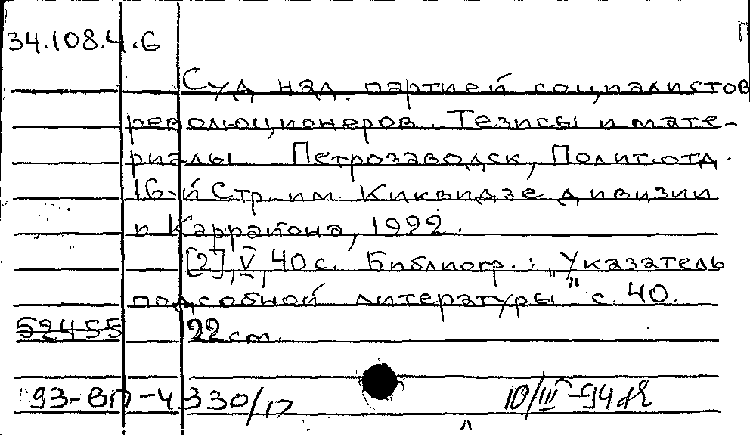 34.108.4.6
Суд над партией социалистов
революционеров. Тезисы и мате-
риалы. Петрозаводск, Полит.отд.
16-й Стр. им. Киквидзе дивизии
и Каррайона, 1922.
[2], V, 40 с. Библиогр.: „Указатель
подсобной литературы" с. 40.
52455 22 см.
93-ВП-4330/17 10/III-94